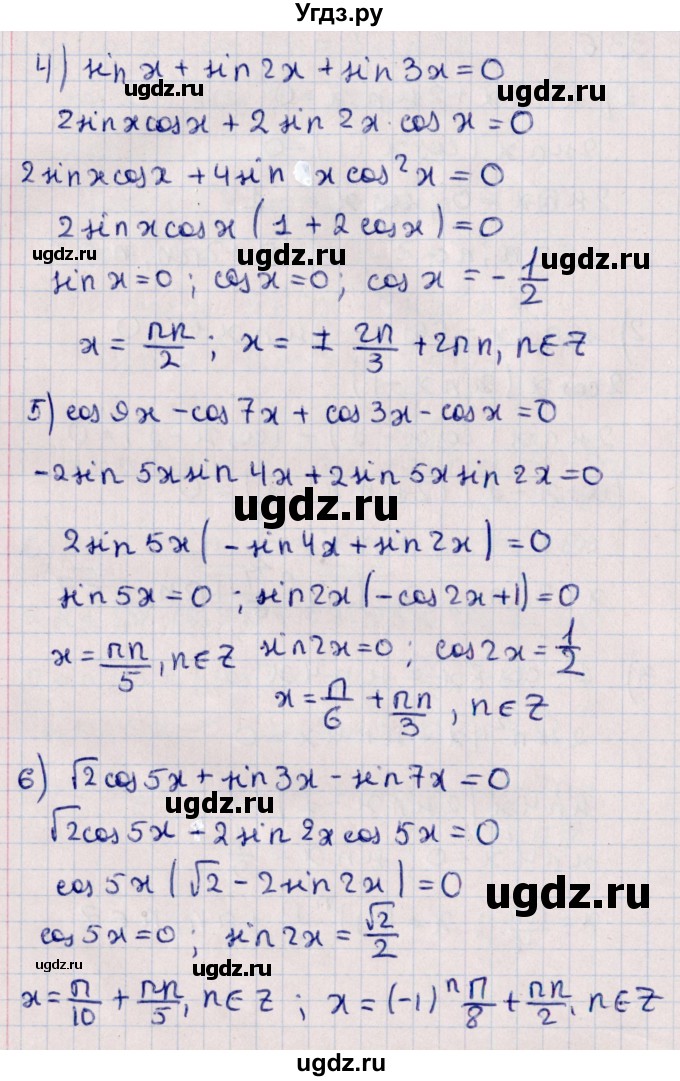 Угдз.ру
4) sin x + sin 2x + sin 3x = 0
ugdz.ru ugdz.ru
2sin x cos x + 2 sin 2x · cos x = 0
2sin x cos x + 4 sin x cos² x = 0
2 sin x cos x (1 + 2 cos x) = 0
ugdz.ru ugdz.ru
sin x = 0 ; cos x = 0 ; cos x = - 1/2
x = πn/2 ; x = ± 2π/3 + 2πn, n ∈ Z
5) cos 9x - cos 7x + cos 3x - cos x = 0
-2 sin 5x sin 4x + 2 sin 5x sin 2x = 0
ugdz.ru
2 sin 5x (- sin 4x + sin 2x) = 0
sin 5x = 0 ; sin 2x (- cos 2x + 1) = 0
x = πn/5, n ∈ Z sin 2x = 0 ; cos 2x = 1/2
x = π/6 + πn/3, n ∈ Z
6) √2 cos 5x + sin 3x - sin 7x = 0
ugdz.ru
√2 cos 5x - 2 sin 2x cos 5x = 0
cos 5x (√2 - 2 sin 2x) = 0
ugdz.ru
cos 5x = 0 ; sin 2x = √2/2
ugdz.ru ugdz.ru
x = π/10 + πn/5, n ∈ Z ; x = (-1)ⁿ π/8 + πn/2, n ∈ Z
ugdz.ru